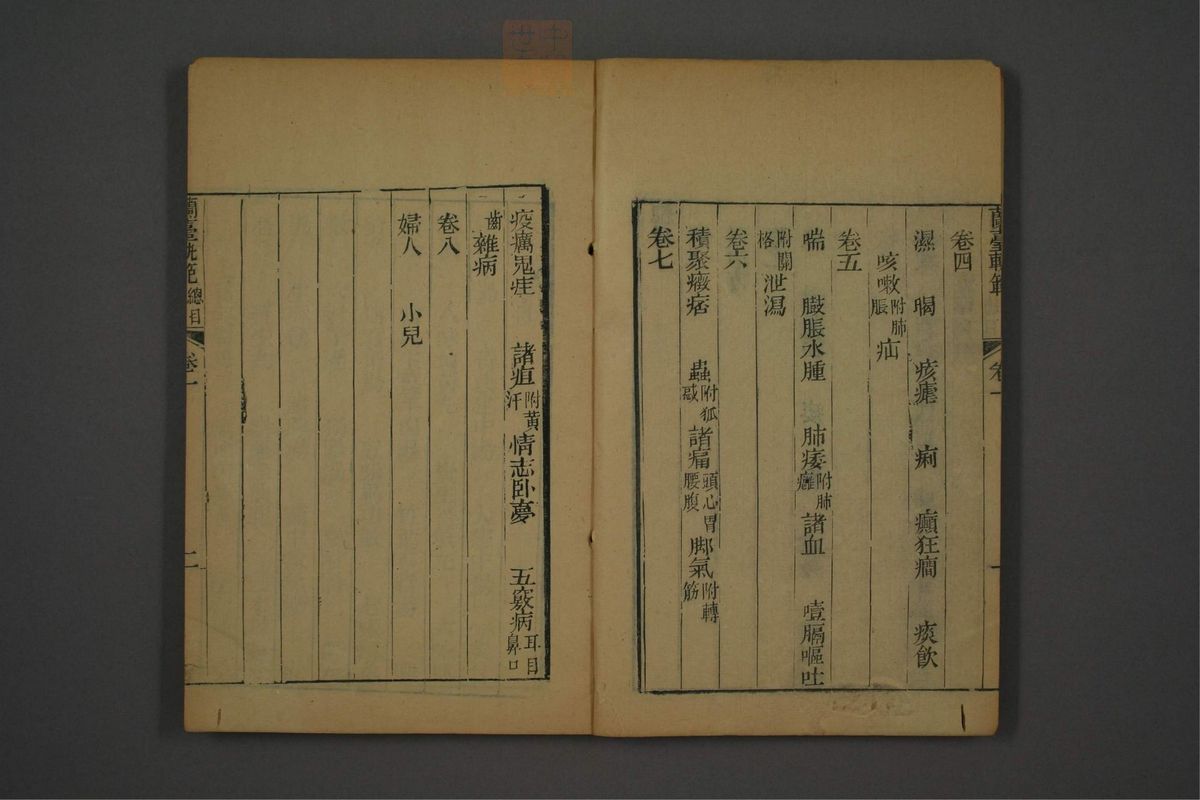 蘭臺軌範
卷一
卷四
濕　暍　痎瘧　痢　癲狂癇　痰飲
咳嗽附肺脹　疝
卷五
喘　臌脹水腫　肺痿附肺癰　諸血　噎膈嘔吐
附關格　泄瀉
卷六
積聚癥痞　蟲附狐惑　諸痛頭心胃腰腹　脚氣附轉筋
卷七
疫癘鬼疰　諸疸附黃汗　情志卧夢　五竅病耳目鼻口
齒　雜病
卷八
婦人　小兒
蘭臺軌範總目
卷一
二